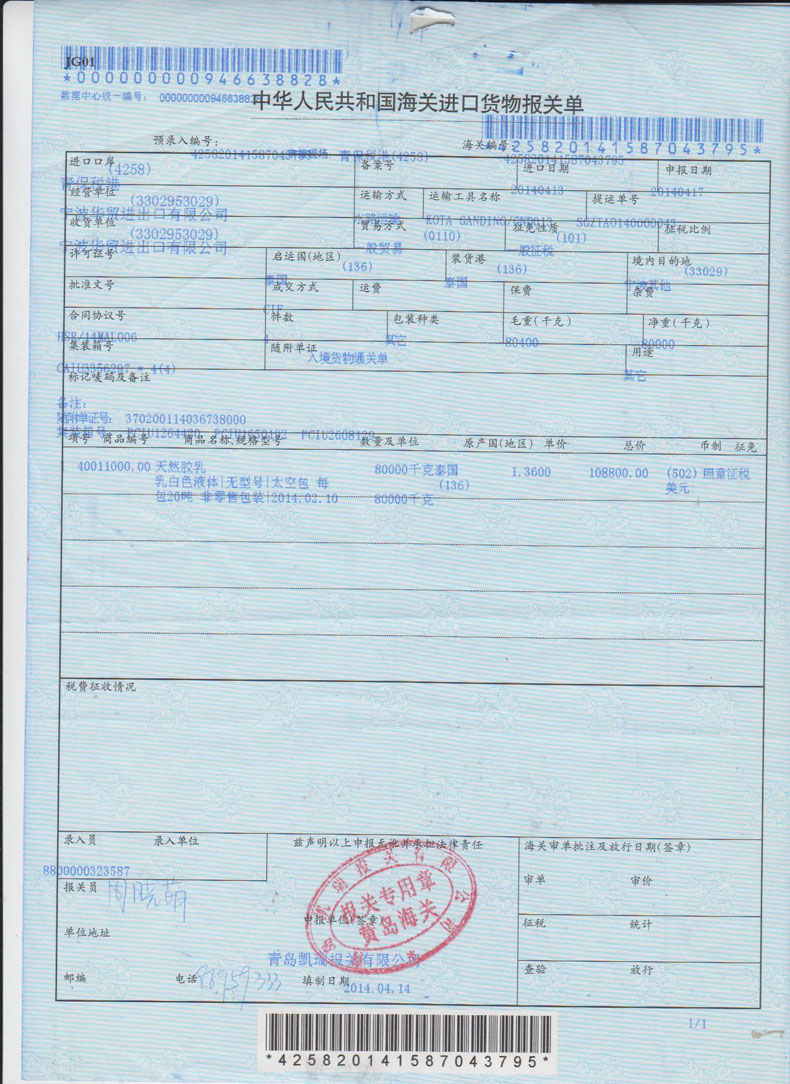 JG01
*000000000946638828*
数据中心统一编号: 0000000009466388
中华人民共和国海关进口货物报关单
*425820141587043795*
预录入编号:
海关编号:
425820141587043795
青保税港(4258)
425820141587043795
进口口岸
(4258)
备案号
进口日期
申报日期
青保税港
20140413
20140417
经营单位
(3302953029)
运输方式
运输工具名称
提运单号
宁波华贸进出口有限公司
水路运输
KOTA GANDING/GND013
SGZTA0140000043
收货单位
(3302953029)
贸易方式
(0110)
征免性质
(101)
征税比例
宁波华贸进出口有限公司
一般贸易
一般征税
许可证号
启运国(地区)
(136)
装货港
(136)
境内目的地
(33029)
泰国
泰国
宁波其他
批准文号
成交方式
运费
保费
杂费
CIF
合同协议号
件数
包装种类
毛重(千克)
净重(千克)
HSR/14MAL006
4
其它
80400
80000
集装箱号
随附单证
用途
CAIU3356297 * 4(4)
入境货物通关单
其它
标记唛码及备注
备注:
随附单证号: 370200114036738000
集装箱号: PCIU1264420 PCIU1650192 PCIU2608120
项号 商品编号 商品名称、规格型号 数量及单位 原产国(地区) 单价 总价 币制 征免
1 40011000.00 天然胶乳 80000千克泰国 1.3600 108800.00 (502) 照章征税
乳白色液体|无型号|太空包 每 (136) 美元
包20吨 非零售包装|2014.02.10 80000千克
税费征收情况
录入员 录入单位
兹声明以上申报无讹并承担法律责任
海关审单批注及放行日期(签章)
8800000323587
报关员
周晓萌
审单 审价
报关专用章
黄岛海关
申报单位(签章)
征税 统计
单位地址
青岛凯瑞报关有限公司
查验 放行
邮编 电话
86959333
填制日期
2014.04.14
1/1
*425820141587043795*